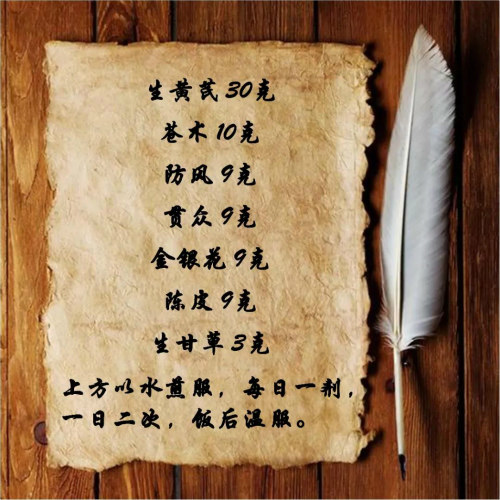 生黄芪 30克
苍术 10克
防风 9克
贯众 9克
金银花 9克
陈皮 9克
生甘草 3克
上方以水煎服，每日一剂，
一日二次，饭后温服。